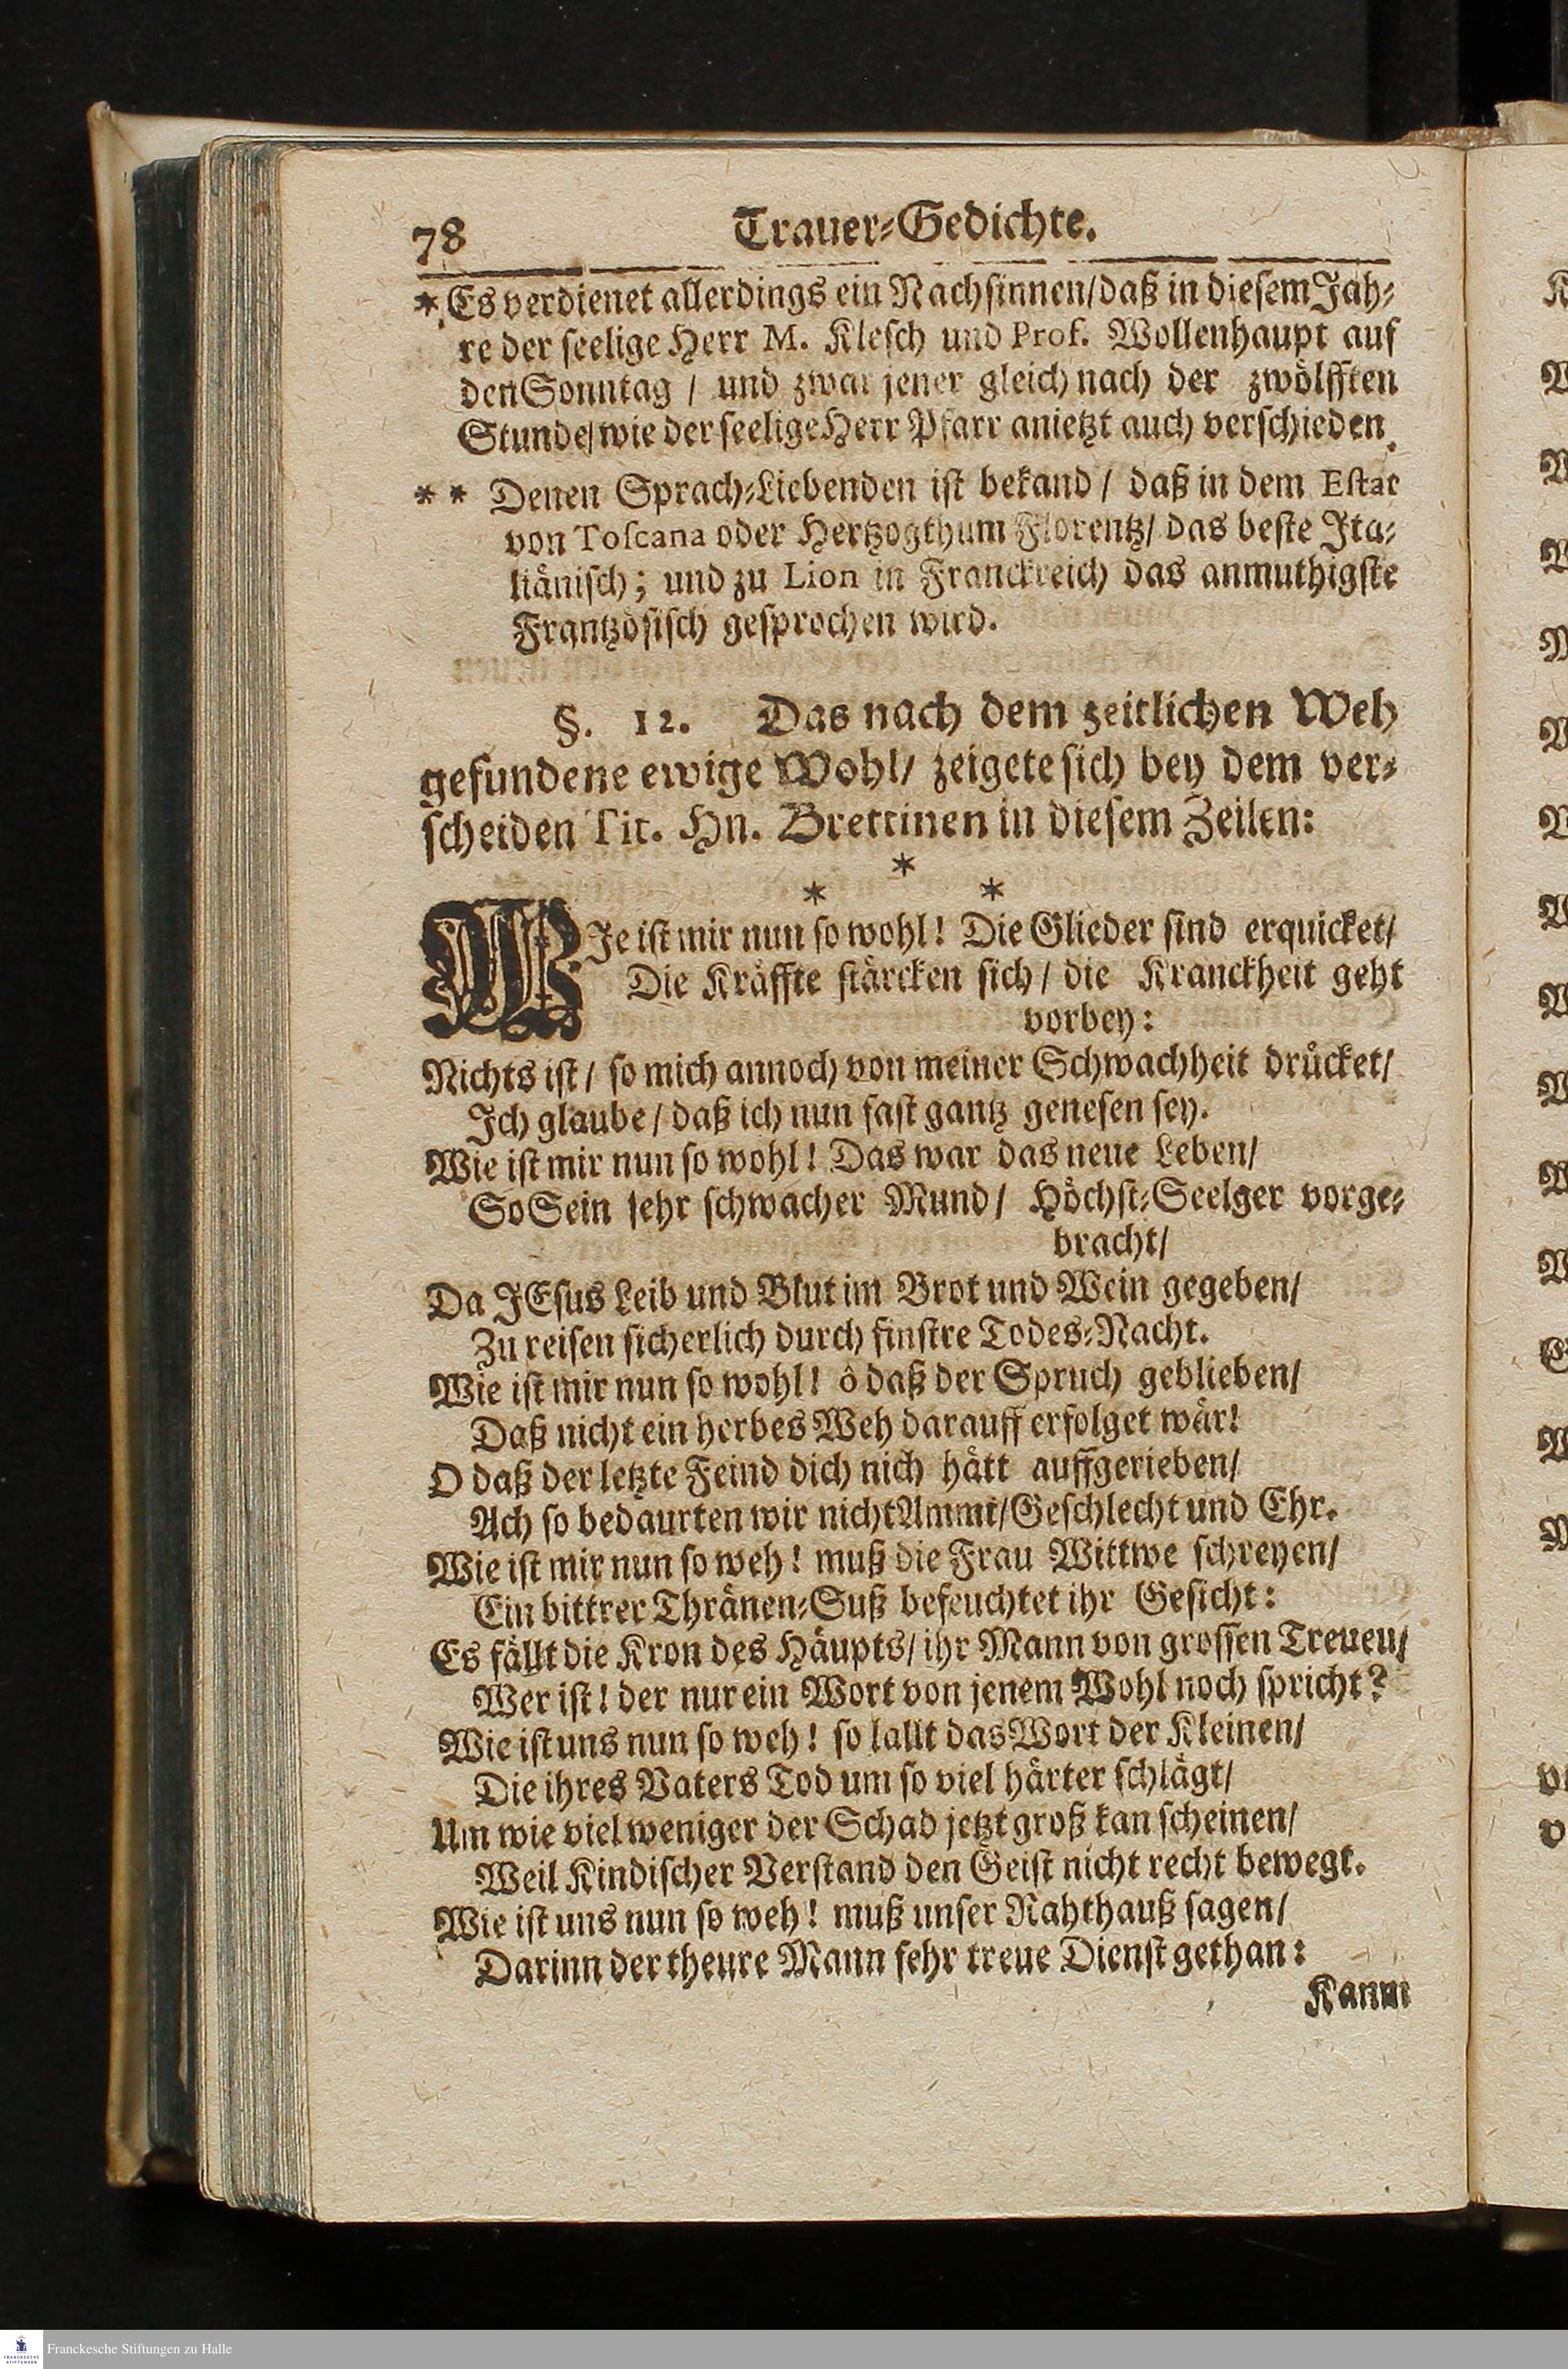 78 Trauer-Gedichte.
* Es verdienet allerdings ein Nachsinnen/ daß in diesem Jah-
re der seelige Herr M. Klesch und Prof. Wollenhaupt auf
den Sonntag / und zwar jener gleich nach der zwölfften
Stunde/ wie der seelige Herr Pfarr anietzt auch verschieden.
* * Denen Sprach-Liebenden ist bekand / daß in dem Estat
von Toscana oder Hertzogthum Florentz/ das beste Ita-
liänisch; und zu Lion in Franckreich das anmuthigste
Frantzösisch gesprochen wird.
§. 12. Das nach dem zeitlichen Weh
gefundene ewige Wohl/ zeigete sich bey dem ver-
scheiden Tit. Hn. Brettinen in diesem Zeilen:
*
* *
WJe ist mir nun so wohl! Die Glieder sind erquicket/
Die Kräffte stärcken sich / die Kranckheit geht
vorbey:
Nichts ist / so mich annoch von meiner Schwachheit drücket/
Jch glaube / daß ich nun fast gantz genesen sey.
Wie ist mir nun so wohl! Das war das neue Leben/
So Sein sehr schwacher Mund / Höchst-Seelger vorge-
bracht/
Da JEsus Leib und Blut im Brot und Wein gegeben/
Zu reisen sicherlich durch finstre Todes-Nacht.
Wie ist mir nun so wohl! ô daß der Spruch geblieben/
Daß nicht ein herbes Weh darauff erfolget wär!
O daß der letzte Feind dich nich hätt auffgerieben/
Ach so bedaurten wir nicht Ammt/ Geschlecht und Ehr.
Wie ist mir nun so weh! muß die Frau Wittwe schreyen/
Ein bittrer Thränen-Guß befeuchtet ihr Gesicht:
Es fällt die Kron des Häupts/ ihr Mann von grossen Treuen/
Wer ist! der nur ein Wort von jenem Wohl noch spricht?
Wie ist uns nun so weh! so lallt das Wort der Kleinen/
Die ihres Vaters Tod um so viel härter schlägt/
Um wie viel weniger der Schad jetzt groß kan scheinen/
Weil Kindischer Verstand den Geist nicht recht bewegt.
Wie ist uns nun so weh! muß unser Rahthauß sagen/
Darinn der theure Mann sehr treue Dienst gethan:
Kanm
Franckesche Stiftungen zu Halle